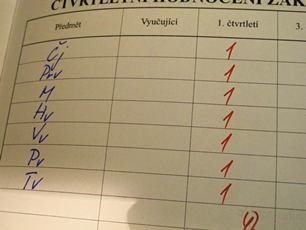 ČTVRTLETNÍ HODNOCENÍ ŽÁK
Předmět Vyučující 1. čtvrtletí 3.
Čj 1
Prv 1
M 1
Hv 1
Vv 1
Pv 1
Tv 1